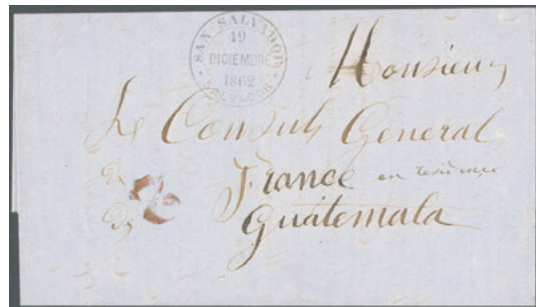 SAN SALVADOR
19
DICIEMBRE
1862
SALVADOR
Monsieur
Le Consul General
de France en residence
Guatemala
2